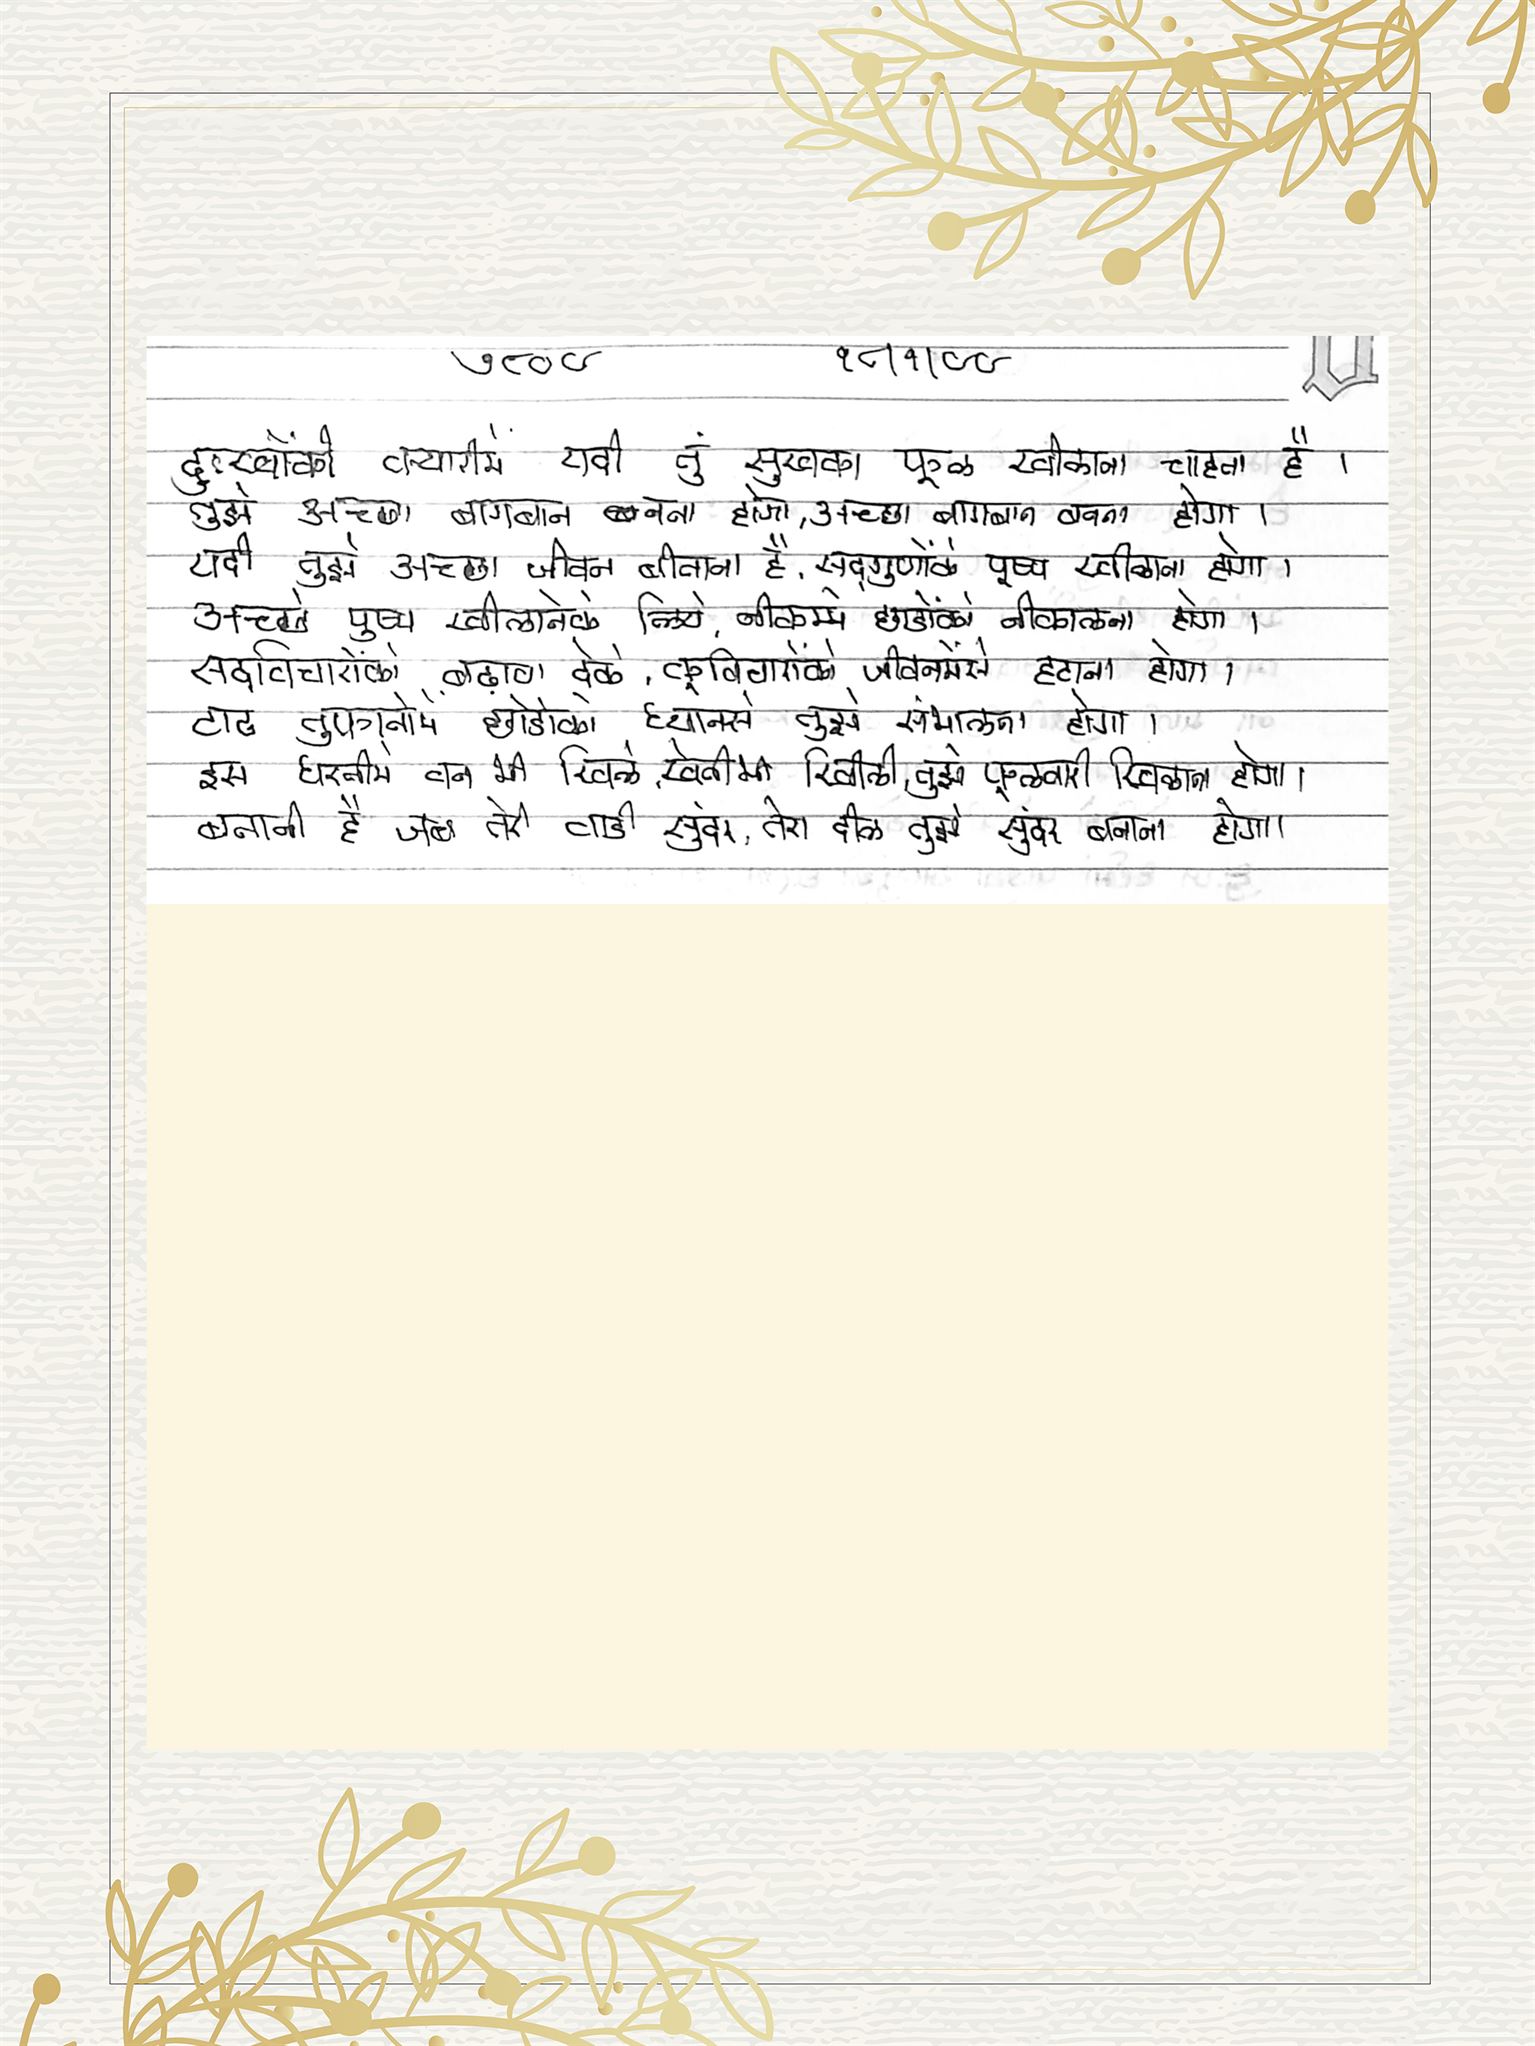 ७९०९ १८|१|९९
दुःखोंकी क्यारीमें यदी तुं सुखका फूल खीलाना चाहता है ।
तुझे अच्छा बागबान बनना होगा, अच्छा बागबान बनना होगा ।
यदी तुझे अच्छा जीवन बीताना है, सद्गुणोंके पूष्प खीलाना होगा ।
अच्छे पुष्प खीलानेके लिये, नीकम्मे छोडोंको नीकालना होगा ।
सदविचारोंको बढ़ावा देके, कूविचारोंको जीवनमेंसे हटाना होगा ।
टाढ तुफानोमें छोडोको ध्यानसे तुझे संभालना होगा ।
इस धरतीमे वन भी खिले, खेतीभी खिली, तुझे फूलवारी खिलाना होगा ।
बनानी है जब तेरी वाडी सुंदर, तेरा दील तुझे सुंदर बनाना होगा ।